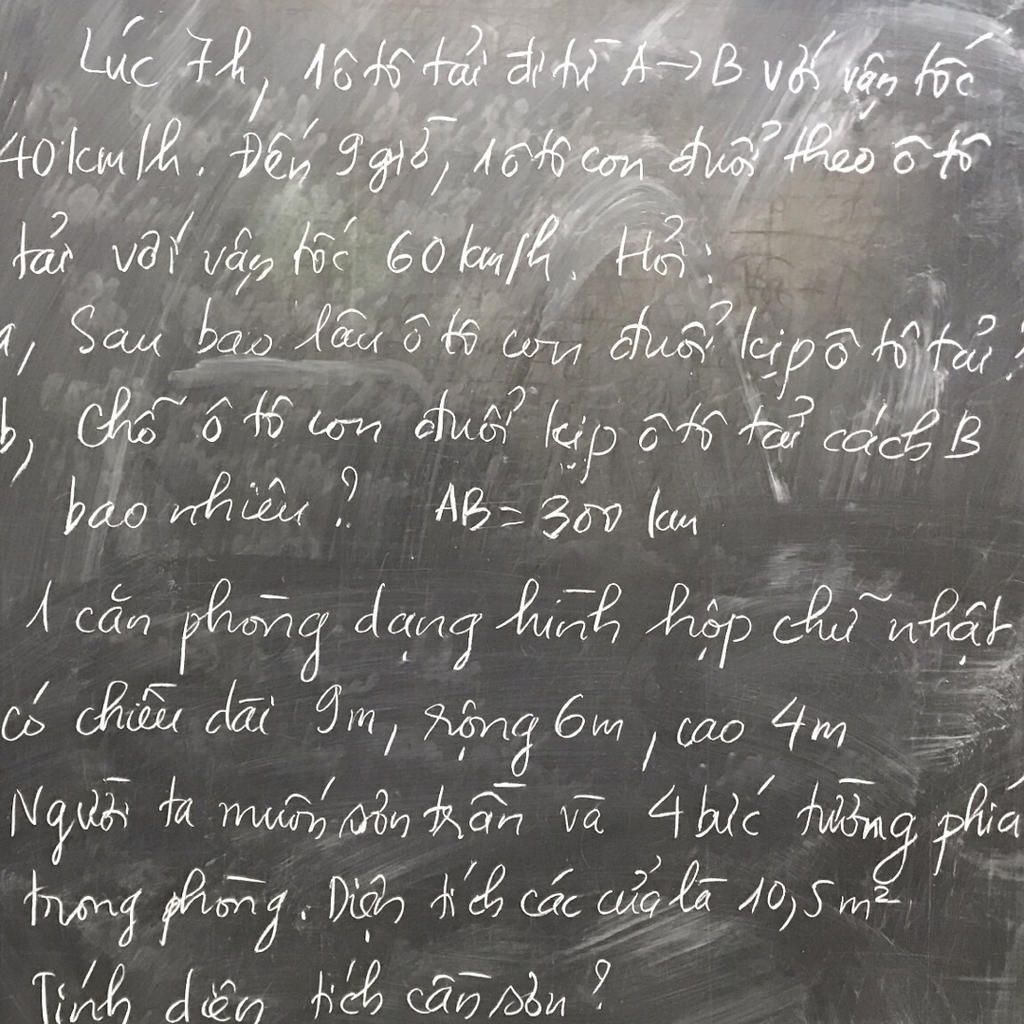 Lúc 7h, 1 ô tô tải đi từ A→B với vận tốc
40 km/h. Đến 9 giờ, 1 ô tô con đuổi theo ô tô
tải với vận tốc 60 km/h. Hỏi:
a, Sau bao lâu ô tô con đuổi kịp ô tô tải?
b, Chỗ ô tô con đuổi kịp ô tô tải cách B
bao nhiêu? AB = 300 km
1 căn phòng dạng hình hộp chữ nhật
có chiều dài 9m, rộng 6m, cao 4m
Người ta muốn sơn trần và 4 bức tường phía
trong phòng. Diện tích các cửa là 10,5 m²
Tính diện tích cần sơn?